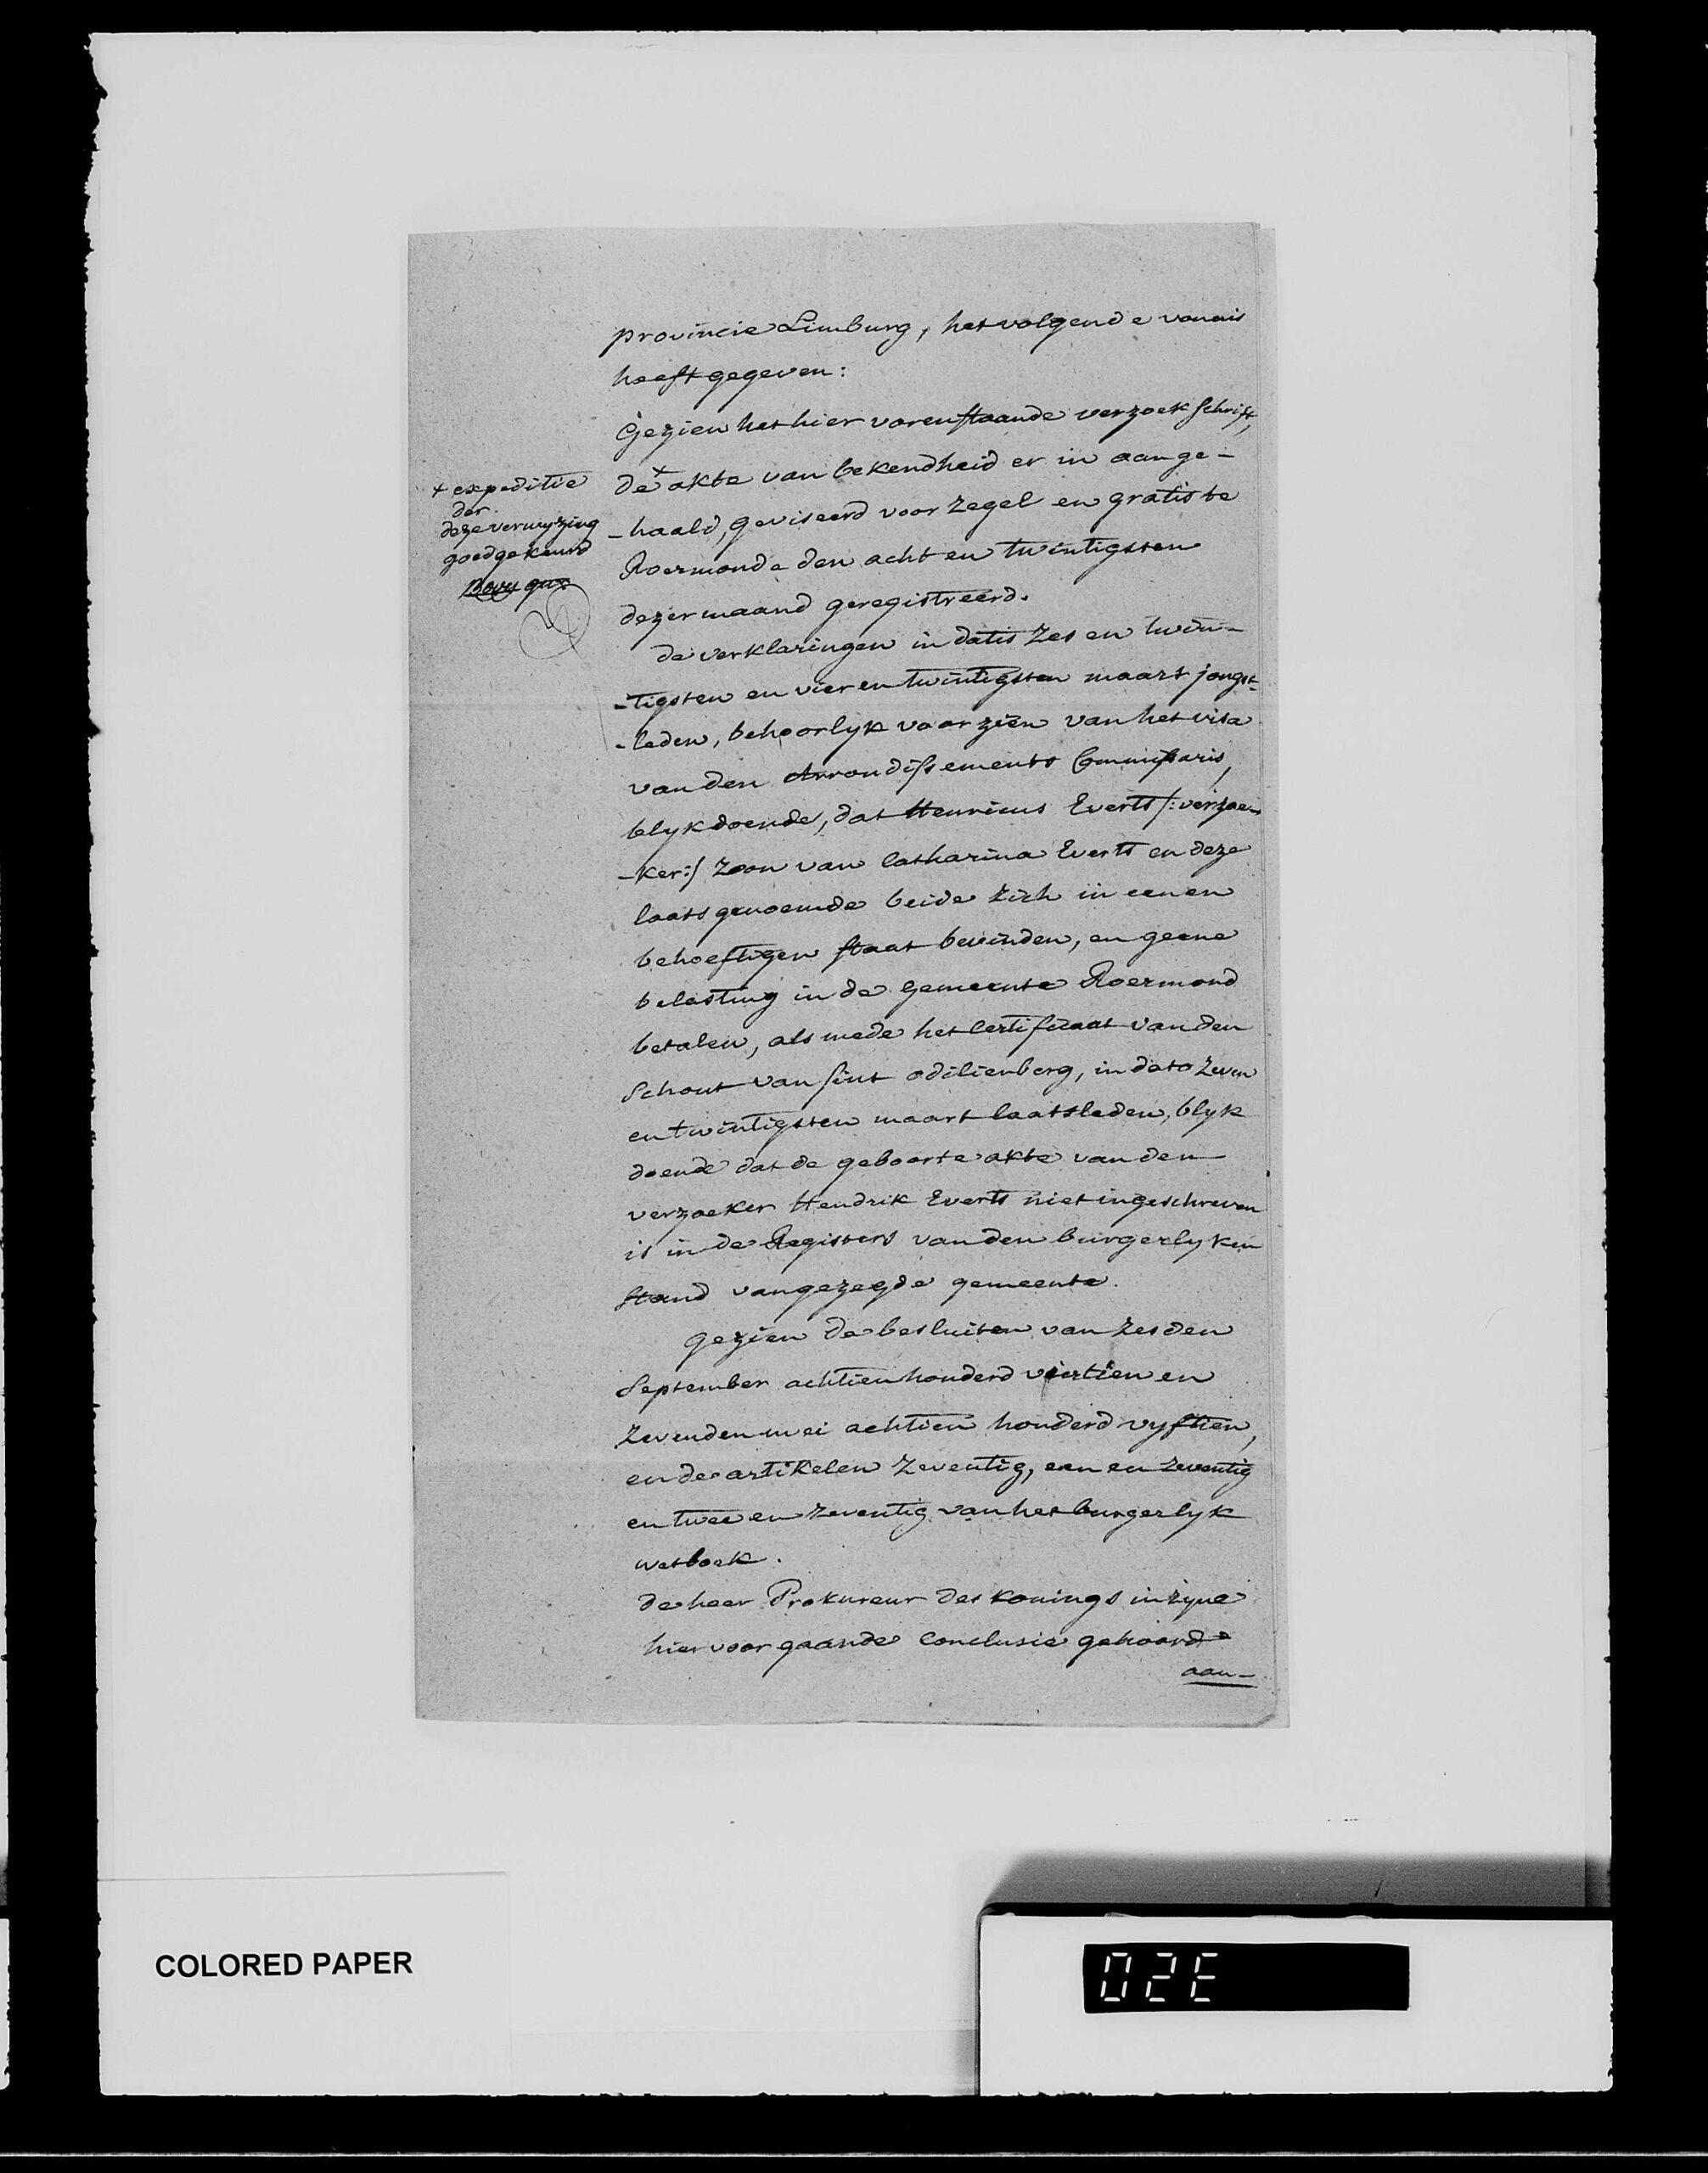 provincie Limburg, het volgende vonnis
heeft gegeven:
Gezien het hier vorenstaande verzoekschrift,
de + akte van bekendheid er in aange-
-haald, geviseerd voor zegel en gratis te
Roermonde den acht en twintigsten
dezer maand geregistreerd.
+ expeditie
der
deze verwyzing
goedgekeurd
de verklaringen in datis zes en twin-
-tigsten en vier en twintigsten maart jongst-
-leden, behoorlyk voorzien van het visa
van den Arrondissements Commissaris,
blykdoende, dat Henricus Everts /: verzoe-
-ker :/ zoon van Catharina Everts en deze
laatsgenoemde beide zich in eenen
behoeftigen staat bevinden, en geene
belasting in de gemeente Roermond
betalen, als mede het Certificaat van den
Schout van sint odilienberg, in dato zeven
en twintigsten maart laatsleden, blyk
doende dat de geboorte akte van den
verzoeker Hendrik Everts niet ingeschreven
is in de Registers van den burgerlyken
stand van gezegde gemeente.
gezien de besluiten van zesden
September achtien honderd viertien en
zevenden mei achtien honderd vyftien,
en de artikelen zeventig, een en zeventig
en twee en zeventig van het burgerlyk
wetboek.
de heer Prokureur des Konings in zyne
hier voorgaande conclusie gehoord
aan-
COLORED PAPER
02E